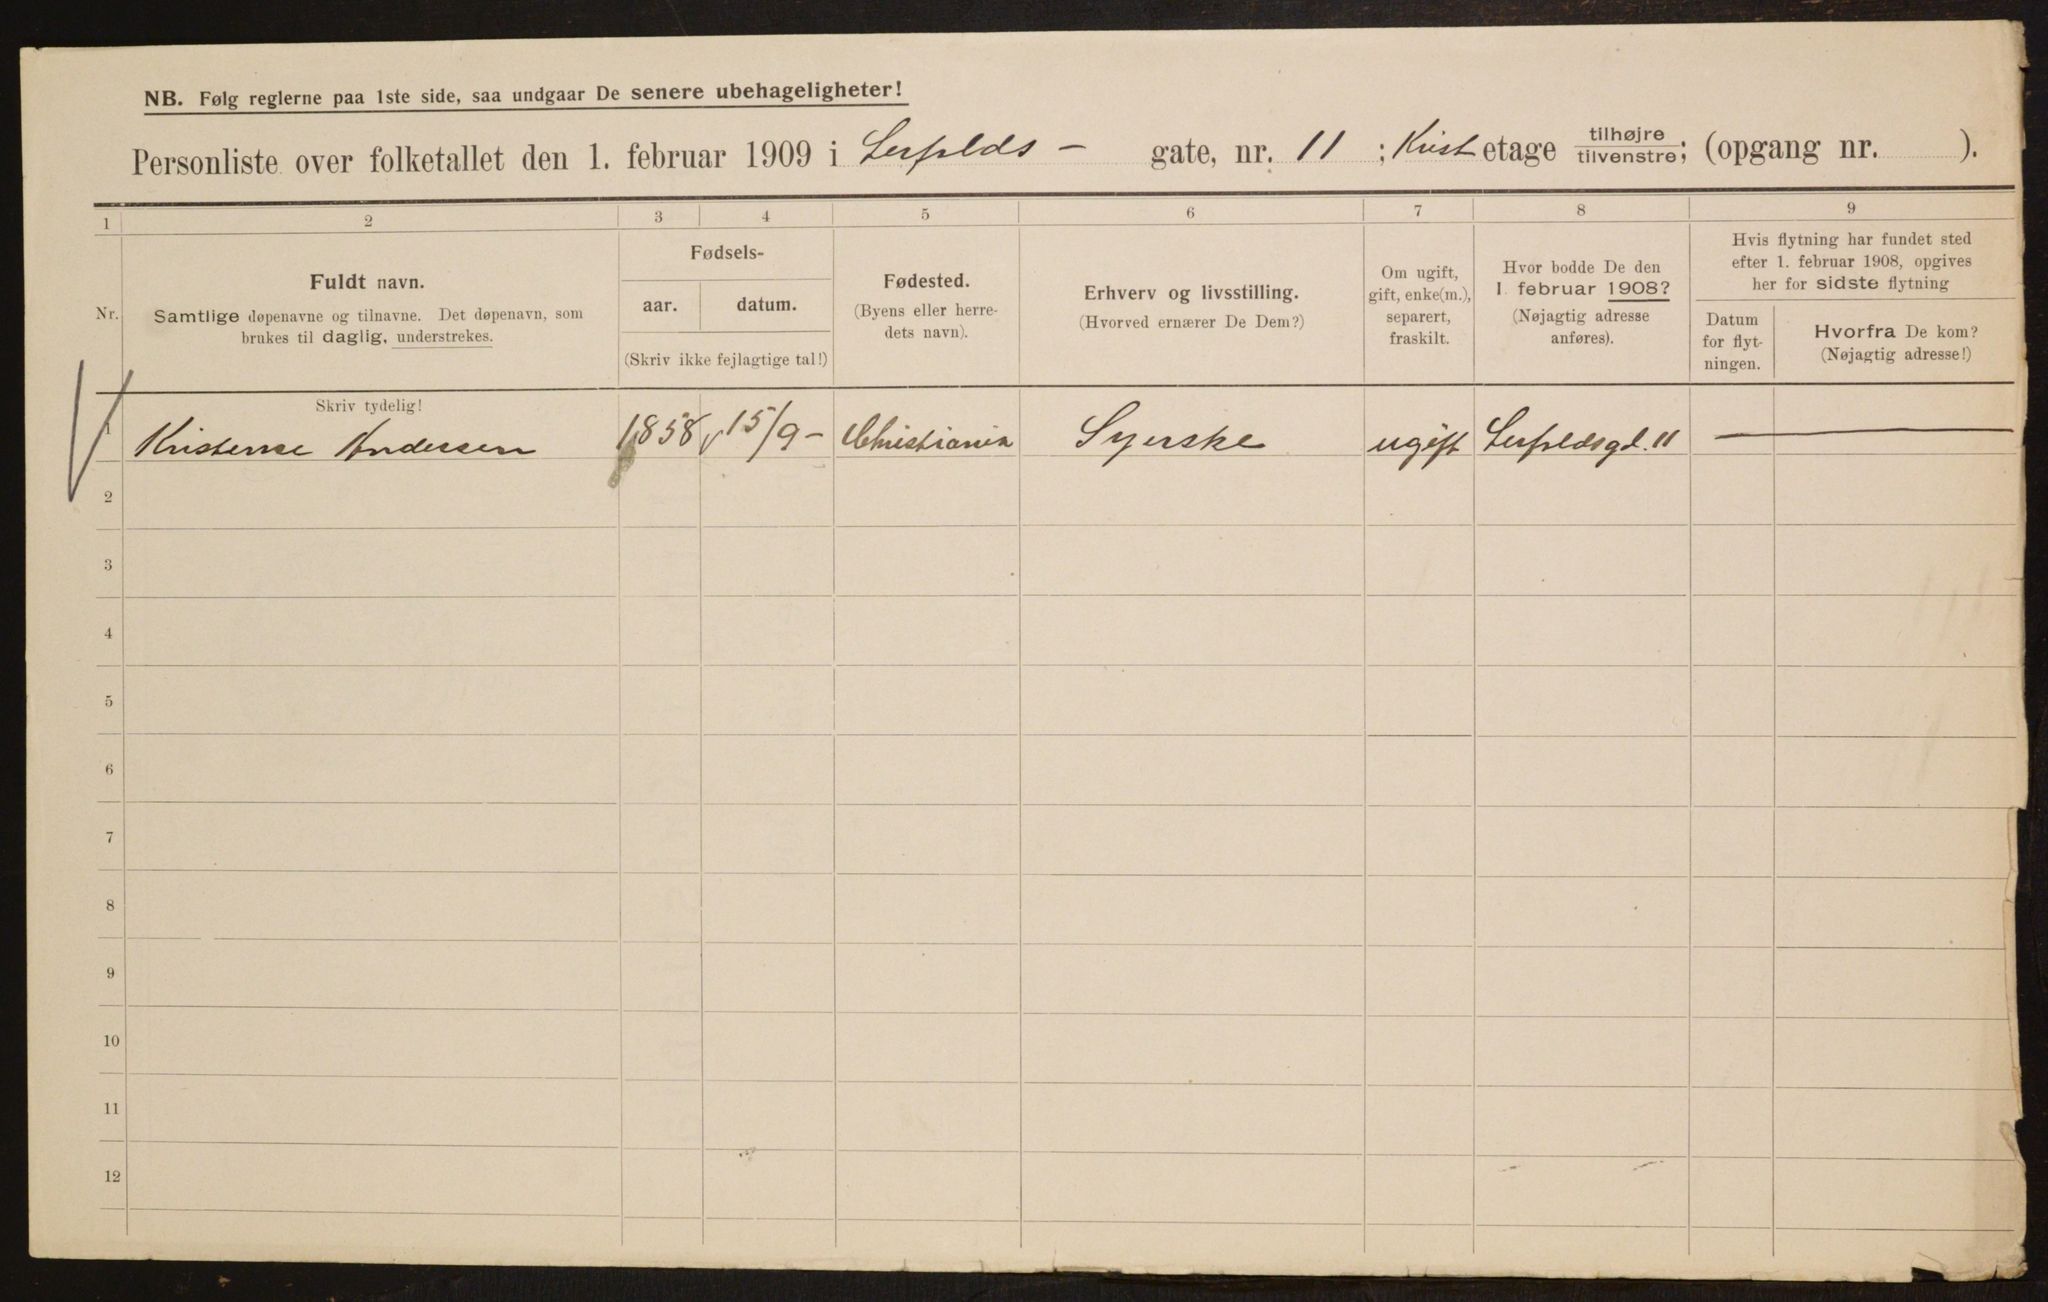 NB. Følg reglerne paa 1ste side, saa undgaar De senere ubehageligheter!
Personliste over folketallet den 1. februar 1909 i Lerfolds - gate, nr. 11 ; Kvist etage tilhøjre tilvenstre; (opgang nr. ).
1 2 3 4 5 6 7 8 9
Nr.
Fuldt navn.
Samtlige døpenavne og tilnavne. Det døpenavn, som
brukes til daglig, understrekes.
Fødsels-
aar. datum.
(Skriv ikke fejlagtige tal!)
Fødested.
(Byens eller herre-
dets navn).
Erhverv og livsstilling.
(Hvorved ernærer De Dem?)
Om ugift,
gift, enke(m.),
separert,
fraskilt.
Hvor bodde De den
1. februar 1908?
(Nøjagtig adresse
anføres).
Hvis flytning har fundet sted
efter 1. februar 1908, opgives
her for sidste flytning
Datum
for flyt-
ningen.
Hvorfra De kom?
(Nøjagtig adresse!)
Skriv tydelig!
1 Kristense Andersen 1858 15/9 - Christiania Syerske ugift Lerfoldsgd. 11 —
2
3
4
5
6
7
8
9
10
11
12